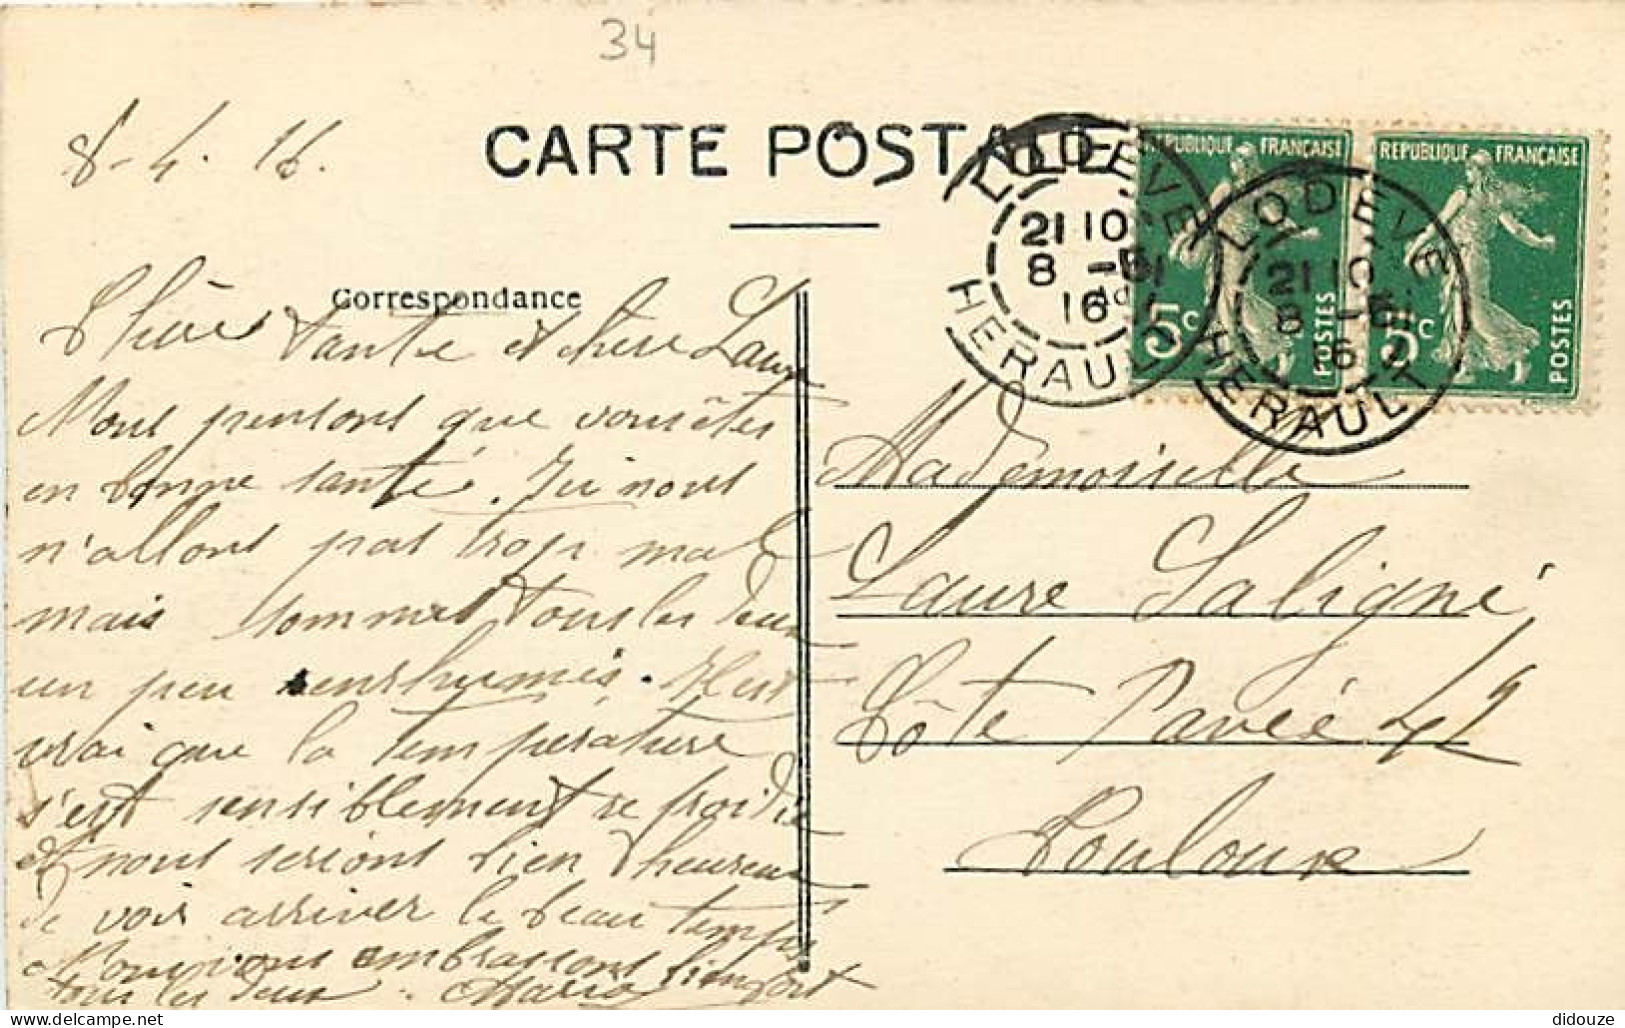 34
8-4. 16.
CARTE POSTALE
Correspondance
Chère tante et chère Laure
Nous pensons que vous êtes
en bonne santé. Ici nous
n'allons pas trop mal
mais sommes tous les deux
un peu enrhumés. Il est
vrai que la température
s'est sensiblement refroidie
et nous serions bien heureux
de voir arriver le beau temps
Nous vous embrassons bien fort
tous les deux. Maria
REPUBLIQUE FRANÇAISE
5c
POSTES
REPUBLIQUE FRANÇAISE
5c
POSTES
LODEVE
21 10
8
16
HERAULT
LODEVE
21 10
8
16
HERAULT
Mademoiselle
Laure Saligné
Côte Pavée 42
Toulouse
didouze